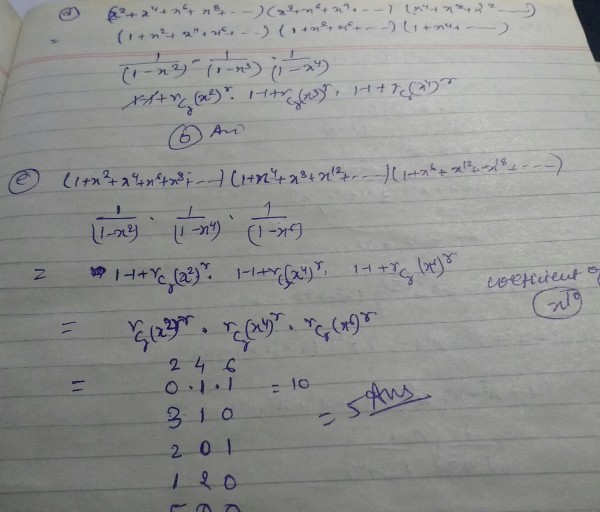 d) (x² + x⁴ + x⁶ + x⁸ + ....) (x³ + x⁶ + x⁹ + ....) (x⁴ + x⁸ + x¹² ....)
= (1 + x² + x⁴ + x⁶ + ...) (1 + x³ + x⁶ + ....) (1 + x⁴ + ....)
1/(1-x²) · 1/(1-x³) · 1/(1-x⁴)
1-1+rCr(x²)^r . 1-1+rCr(x³)^r . 1-1+rCr(x⁴)^r
6 Ans
e) (1+x²+x⁴+x⁶+x⁸+...) (1+x⁴+x⁸+x¹²+....) (1+x⁶+x¹²+x¹⁸+....)
1/(1-x²) · 1/(1-x⁴) · 1/(1-x⁶)
= 1-1+rCr(x²)^r . 1-1+rCr(x⁴)^r . 1-1+rCr(x⁶)^r coefficient of
= rCr(x²)^r . rCr(x⁴)^r . rCr(x⁶)^r x¹⁰
2 4 6
= 0 . 1 . 1 = 10
3 1 0 = 5 Ans
2 0 1
1 2 0
5 0 0